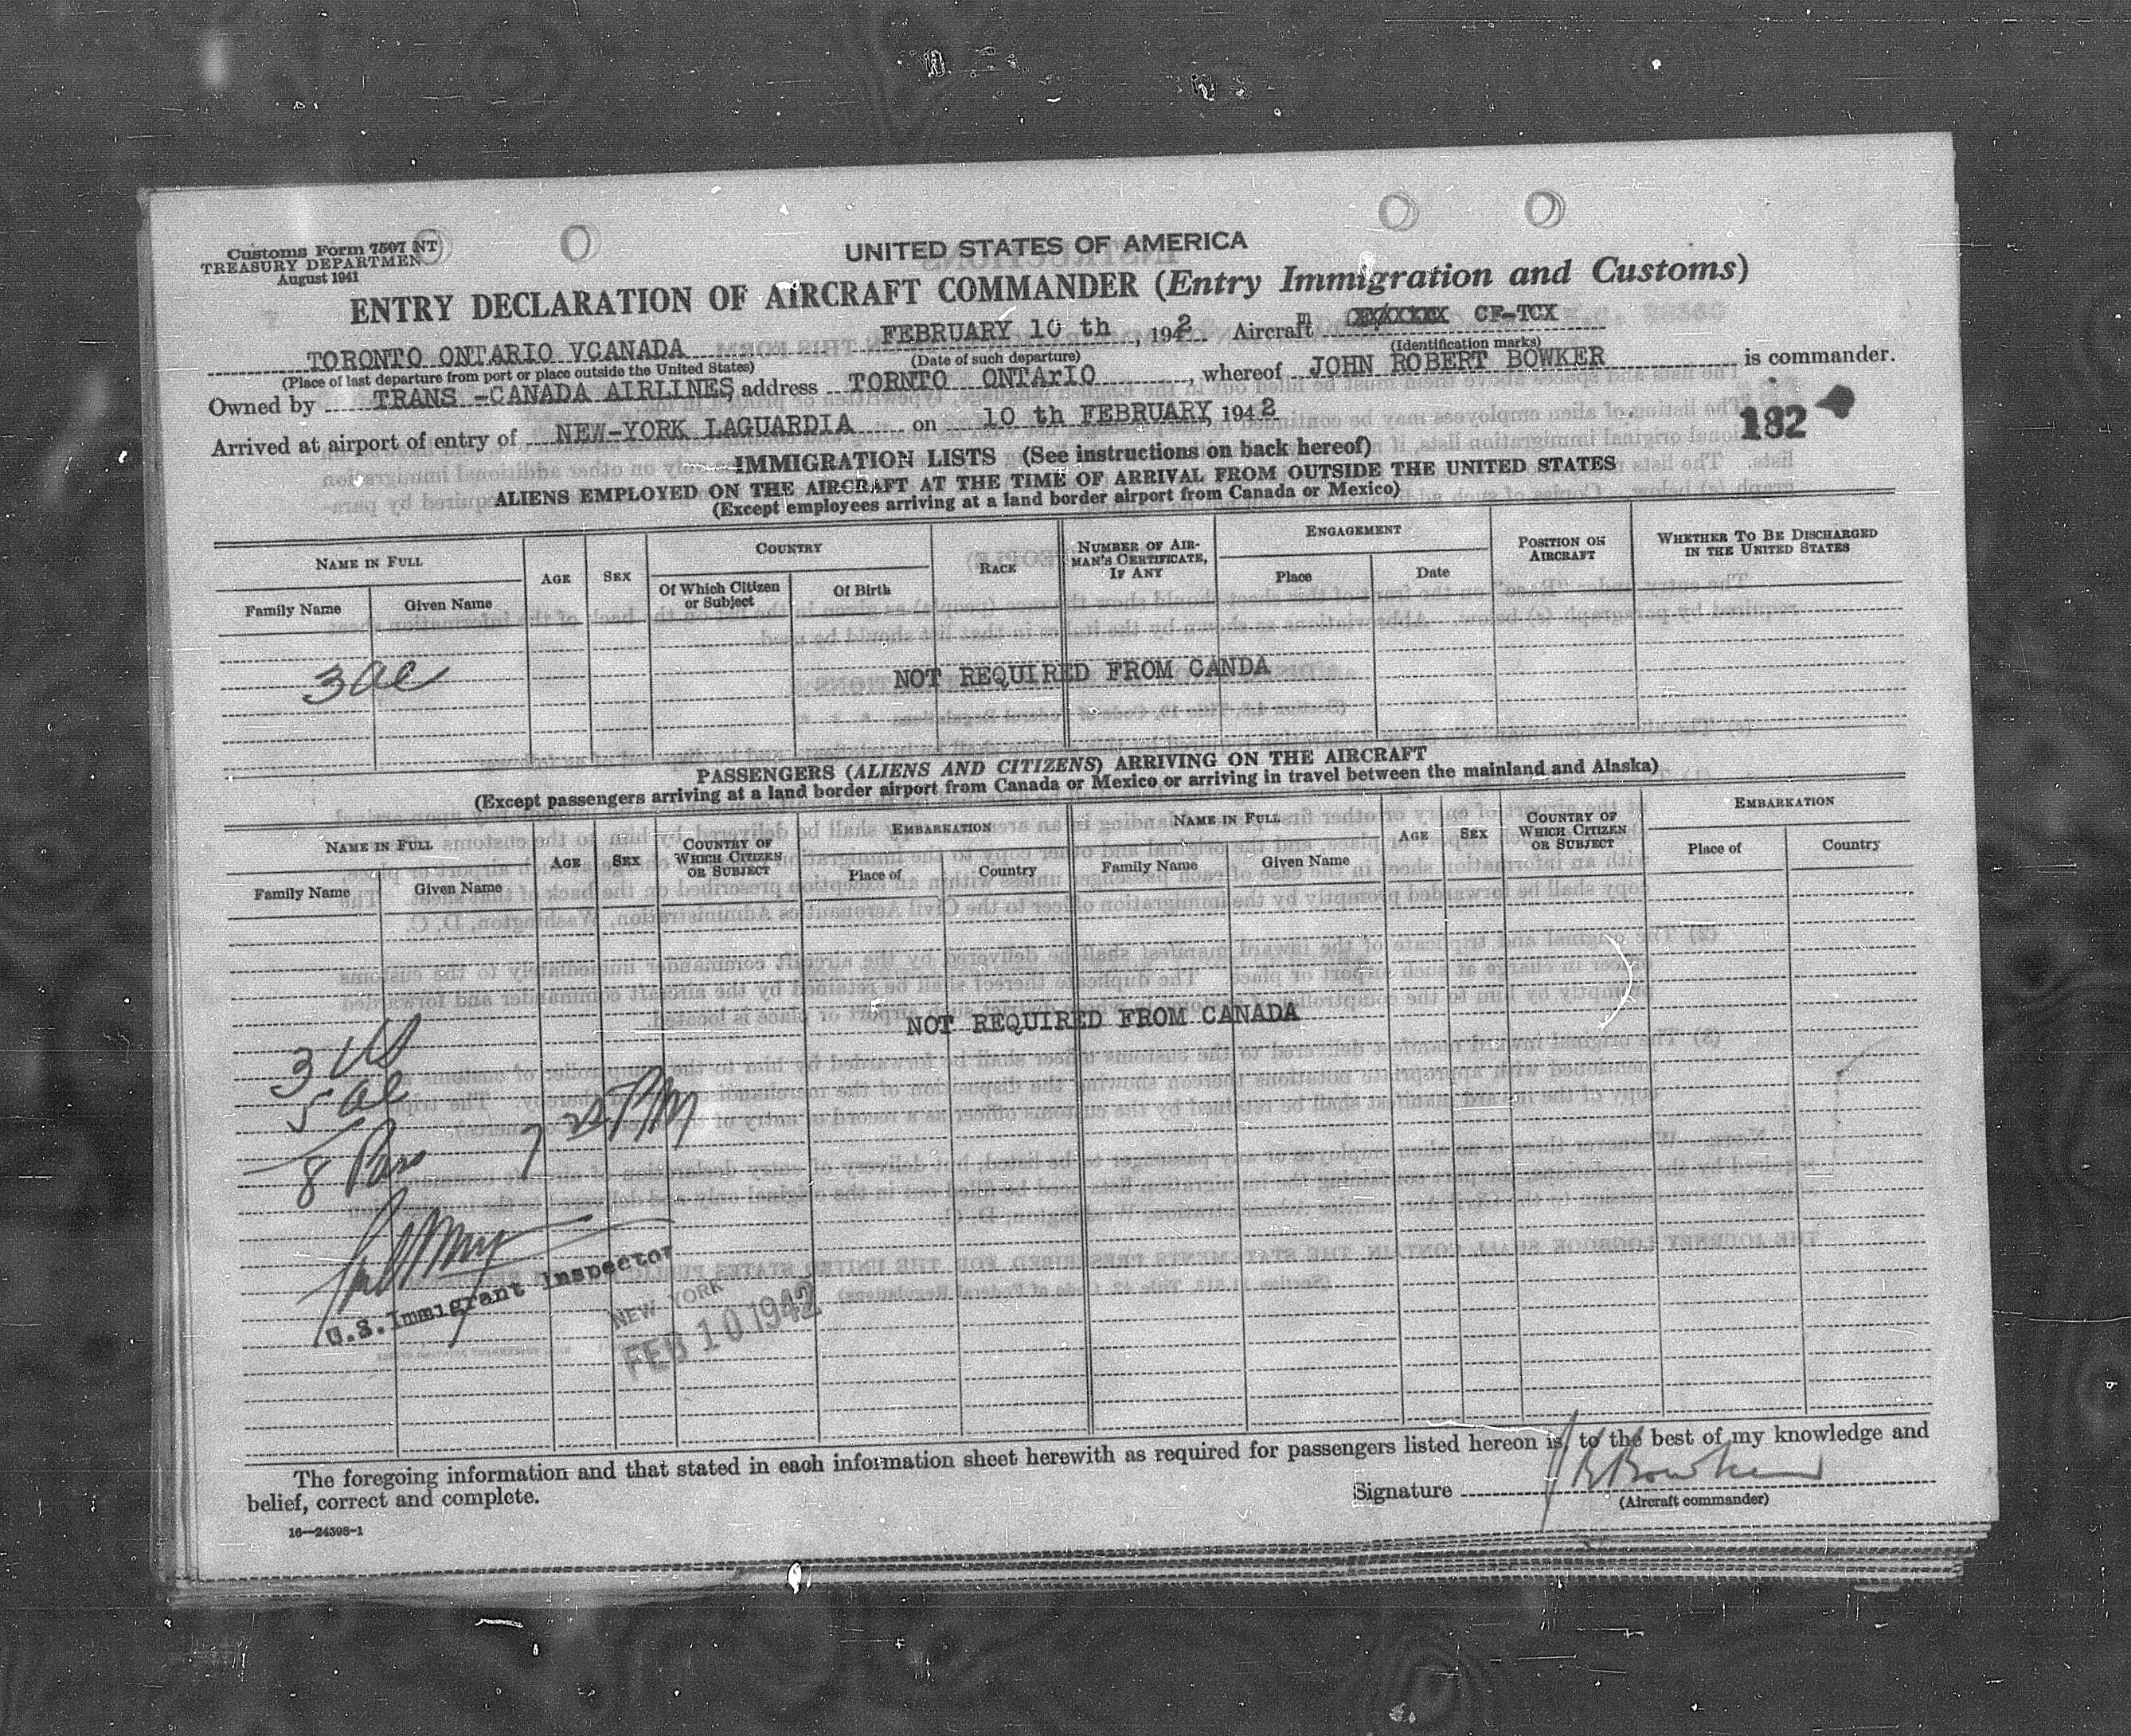 Customs Form 7507 NT
TREASURY DEPARTMEN
August 1941
UNITED STATES OF AMERICA
ENTRY DECLARATION OF AIRCRAFT COMMANDER (Entry Immigration and Customs)
TORONTO ONTARIO VCANADA FEBRUARY 10 th, 1942 Aircraft CF-TCX
(Place of last departure from port or place outside the United States) (Date of such departure) (Identification marks)
Owned by TRANS -CANADA AIRLINES, address TORNTO ONTArIO, whereof JOHN ROBERT BOWKER is commander.
Arrived at airport of entry of NEW-YORK LAGUARDIA on 10 th FEBRUARY 1942
182
IMMIGRATION LISTS (See instructions on back hereof)
ALIENS EMPLOYED ON THE AIRCRAFT AT THE TIME OF ARRIVAL FROM OUTSIDE THE UNITED STATES
(Except employees arriving at a land border airport from Canada or Mexico)
NAME IN FULL AGE SEX COUNTRY RACE NUMBER OF AIRMAN'S CERTIFICATE, IF ANY ENGAGEMENT POSITION ON AIRCRAFT WHETHER TO BE DISCHARGED IN THE UNITED STATES
Family Name Given Name Of Which Citizen or Subject Of Birth Place Date
3 al
NOT REQUIRED FROM CANDA
PASSENGERS (ALIENS AND CITIZENS) ARRIVING ON THE AIRCRAFT
(Except passengers arriving at a land border airport from Canada or Mexico or arriving in travel between the mainland and Alaska)
NAME IN FULL AGE SEX COUNTRY OF WHICH CITIZEN OR SUBJECT EMBARKATION NAME IN FULL AGE SEX COUNTRY OF WHICH CITIZEN OR SUBJECT EMBARKATION
Family Name Given Name Place of Country Family Name Given Name Place of Country
NOT REQUIRED FROM CANADA
3 US
5 al
8 Pass 7 25 PM
U.S. Immigrant Inspector
NEW YORK
FEB 10 1942
The foregoing information and that stated in each information sheet herewith as required for passengers listed hereon is, to the best of my knowledge and
belief, correct and complete.
Signature J R Bowker
(Aircraft commander)
16—24598-1